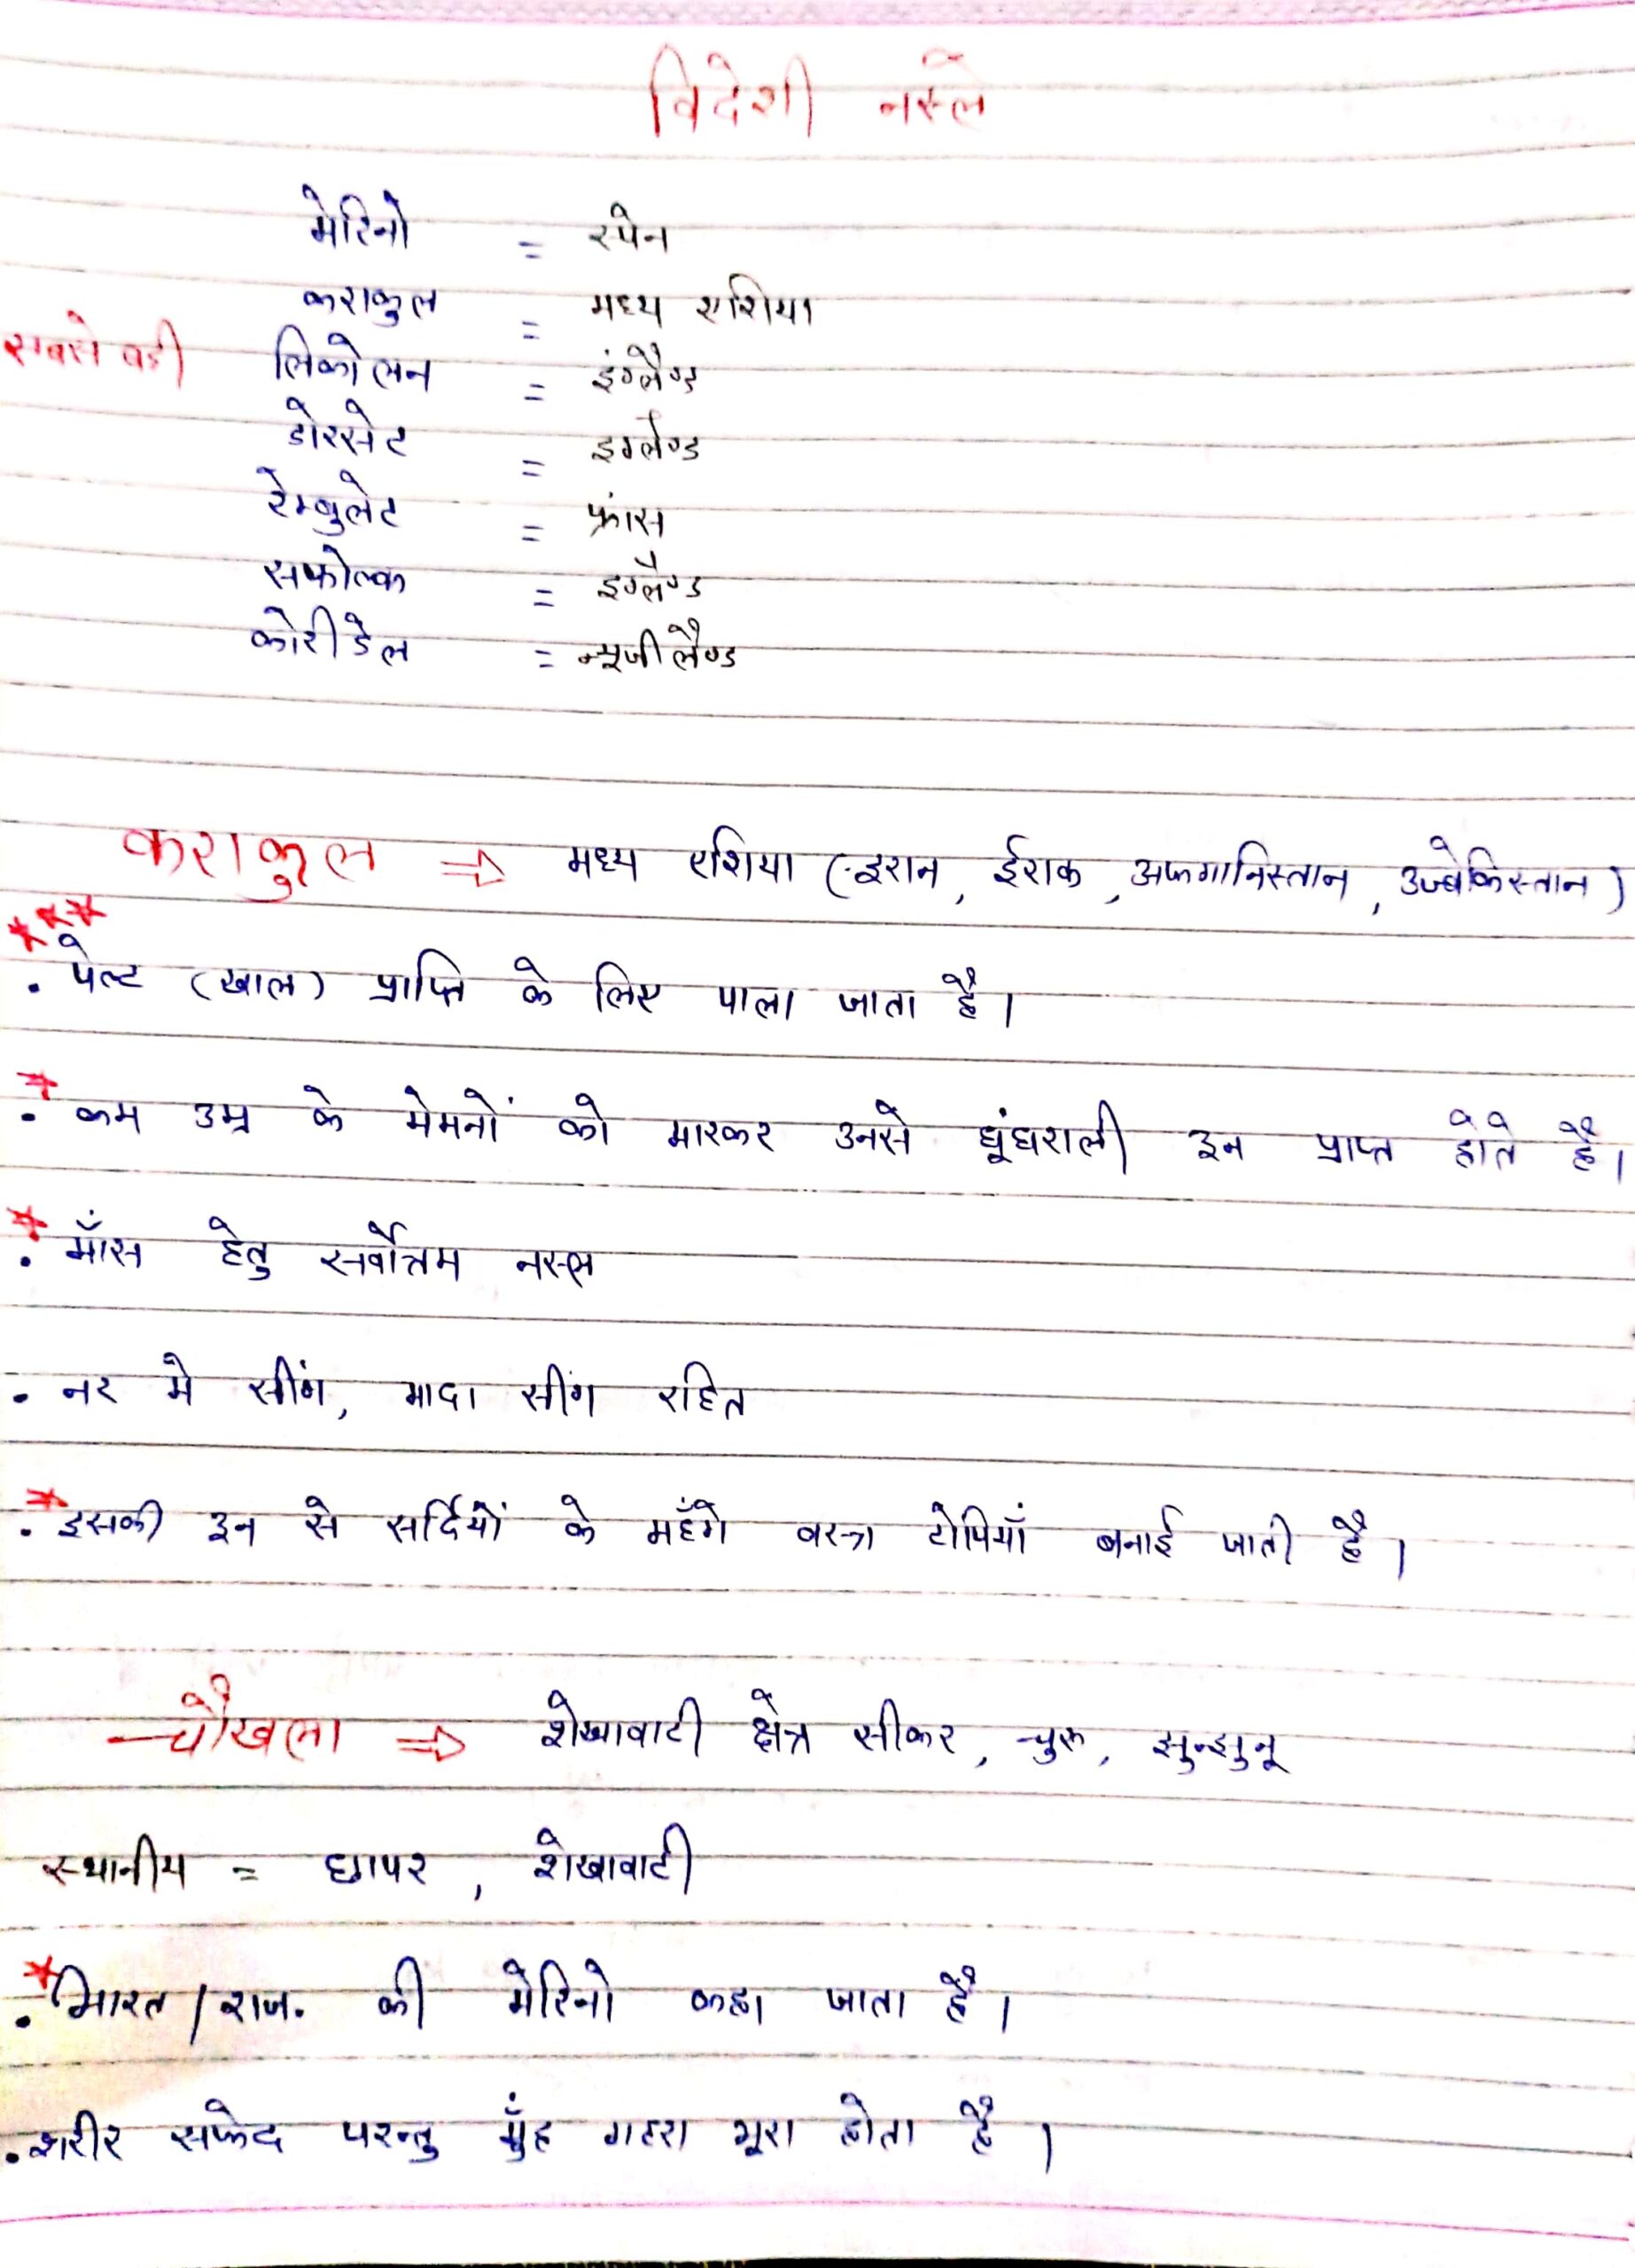 विदेशी नस्ले
मेरिनो = स्पेन
कराकुल = मध्य एशिया
सबसे बडी लिकोलन = इंग्लैण्ड
डोरसेट = इग्लैण्ड
रेम्बुलेट = फ्रांस
सफोल्क = इग्लैण्ड
कोरीडेल = न्यूजीलैण्ड
कराकुल ⇒ मध्य एशिया (इरान, ईराक, अफगानिस्तान, उज्बेकिस्तान)
***
• पेल्ट (खाल) प्राप्ति के लिए पाला जाता है।
* • कम उम्र के मेमनों को मारकर उनसे घूंघराली उन प्राप्त होते है।
* • माँस हेतु सर्वोत्तम नस्ल
• नर मे सींग, मादा सींग रहित
* • इसकी उन से सर्दियों के महँगे वस्त्र टोपियाँ बनाई जाती है।
चौखला ⇒ शेखावाटी क्षेत्र सीकर, चुरू, झुन्झुनू
स्थानीय = छापर, शेखावाटी
* • भारत / राज. की मेरिनो कहा जाता है।
• शरीर सफेद परन्तु मुँह गहरा भूरा होता है।